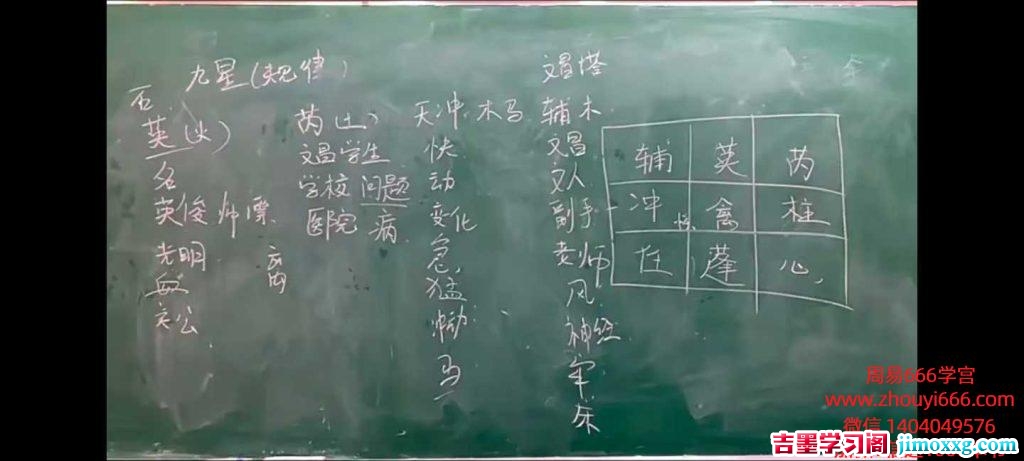 九星(规律)
英(火)
名
英俊 帅 漂
光明
芮(土)
文昌学生
学校 问题
医院 病
天冲 木马
快
动
变化
急
猛
冲动
马
文昌塔
辅木
文昌
文人
副手
老师
风
神经
辅 英 芮
冲 禽 柱
任 蓬 心
周易666学宫
www.zhouyi666.com
微信 1404049576
吉墨学习阁 jimoxxg.com